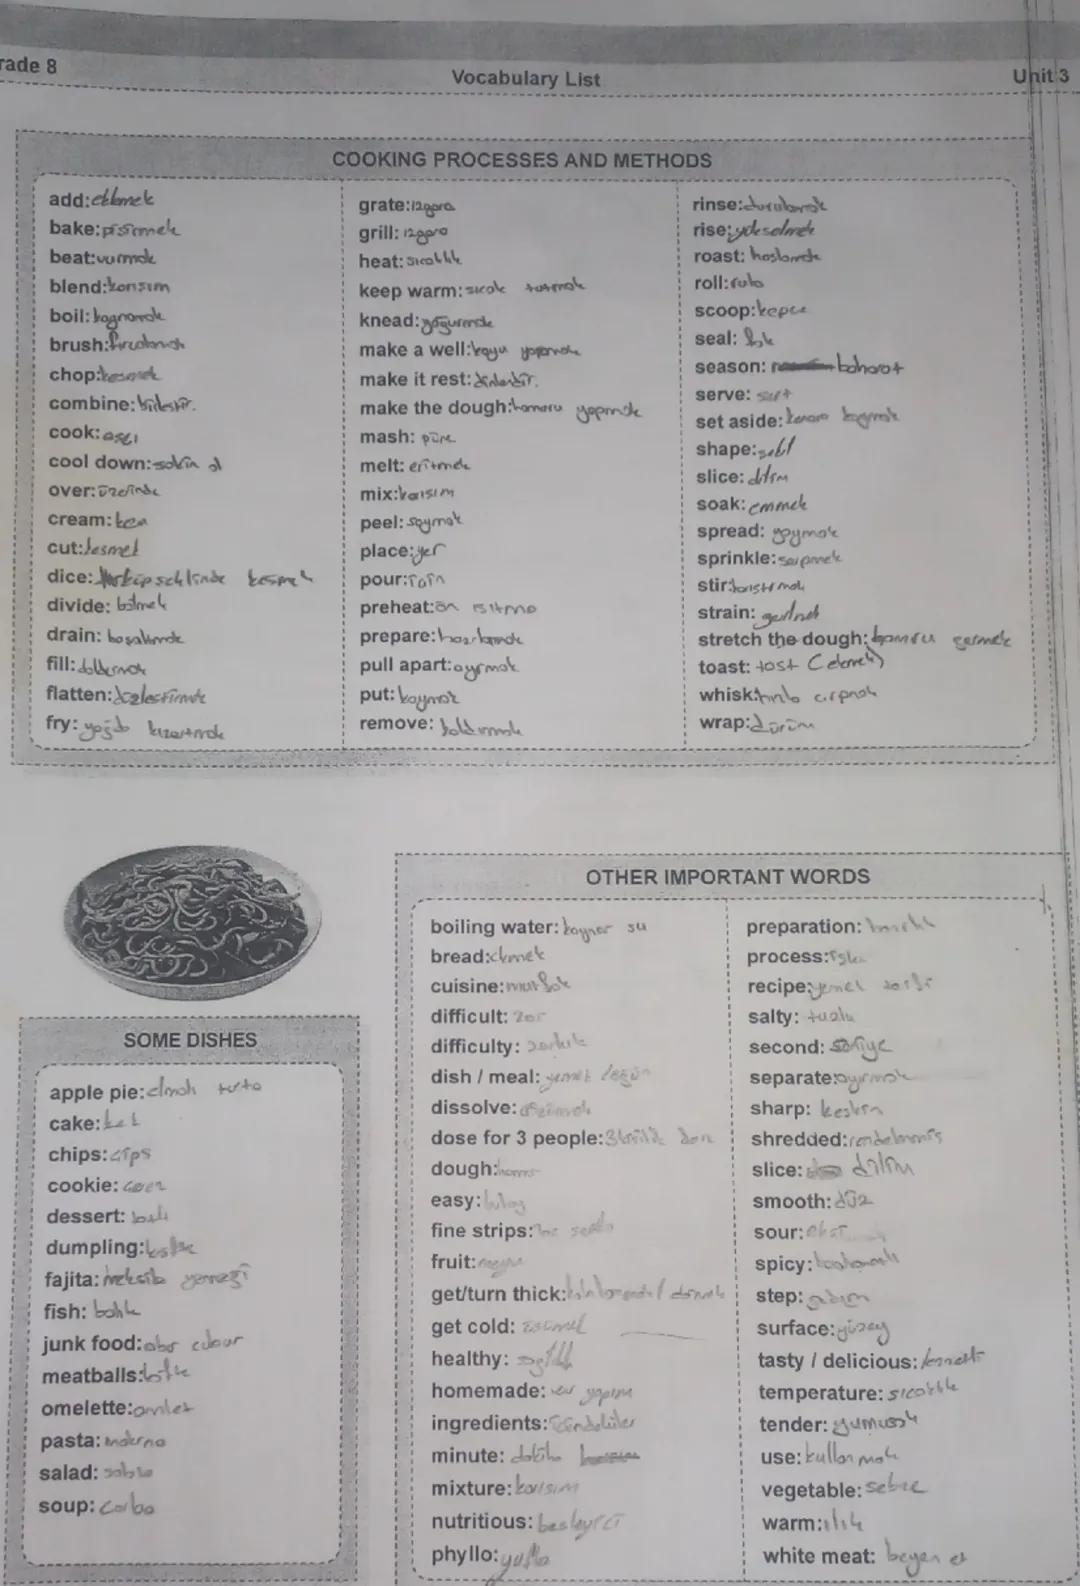 rade 8
Vocabulary List
Unit 3
COOKING PROCESSES AND METHODS
add: eklemek
bake: pişirmek
beat: vurmak
blend: karışım
boil: kaynamak
brush: fırçalamak
chop: kesmek
combine: birleştir.
cook: aşçı
cool down: sakin ol
over: üzerinde
cream: krem
cut: kesmek
dice: küp şeklinde kesmek
divide: bölmek
drain: boşaltmak
fill: doldurmak
flatten: düzleştirmek
fry: yağda kızartmak
grate: ızgara
grill: ızgara
heat: sıcaklık
keep warm: sıcak tutmak
knead: yoğurmak
make a well: kuyu yapmak
make it rest: dinlendir.
make the dough: hamuru yapmak
mash: püre
melt: eritmek
mix: karışım
peel: soymak
place: yer
pour:
preheat: ön ısıtma
prepare: hazırlamak
pull apart: ayırmak
put: koymak
remove: kaldırmak
rinse: durulamak
rise: yükselmek
roast: haşlamak
roll: rulo
scoop: kepçe
seal: fok
season: baharat
serve: sert
set aside: kenara koymak
shape: şekil
slice: dilim
soak: emmek
spread: yaymak
sprinkle: serpmek
stir: karıştırmak
strain: gerilmek
stretch the dough: hamuru germek
toast: tost (ekmek)
whisk: çırpmak
wrap: dürüm
SOME DISHES
apple pie: elmalı turta
cake: kek
chips: cips
cookie:
dessert: tatlı
dumpling:
fajita: meksika yemeği
fish: balık
junk food: abur cubur
meatballs: köfte
omelette: omlet
pasta: makarna
salad: salata
soup: çorba
OTHER IMPORTANT WORDS
boiling water: kaynar su
bread: ekmek
cuisine: mutfak
difficult: zor
difficulty: zorluk
dish / meal: yemek
dissolve:
dose for 3 people: 3 kişilik
dough: hamur
easy: kolay
fine strips: ince
fruit: meyve
get/turn thick:
get cold:
healthy: sağlıklı
homemade: ev yapımı
ingredients: içindekiler
minute: dakika
mixture: karışım
nutritious: besleyici
phyllo: yufka
preparation: hazırlık
process:
recipe: yemek tarifi
salty: tuzlu
second: saniye
separate: ayırmak
sharp: keskin
shredded: rendelenmiş
slice: dilim
smooth: düz
sour: ekşi
spicy: baharatlı
step: adım
surface: yüzey
tasty / delicious: lezzetli
temperature: sıcaklık
tender: yumuşak
use: kullanmak
vegetable: sebze
warm: ılık
white meat: beyaz et